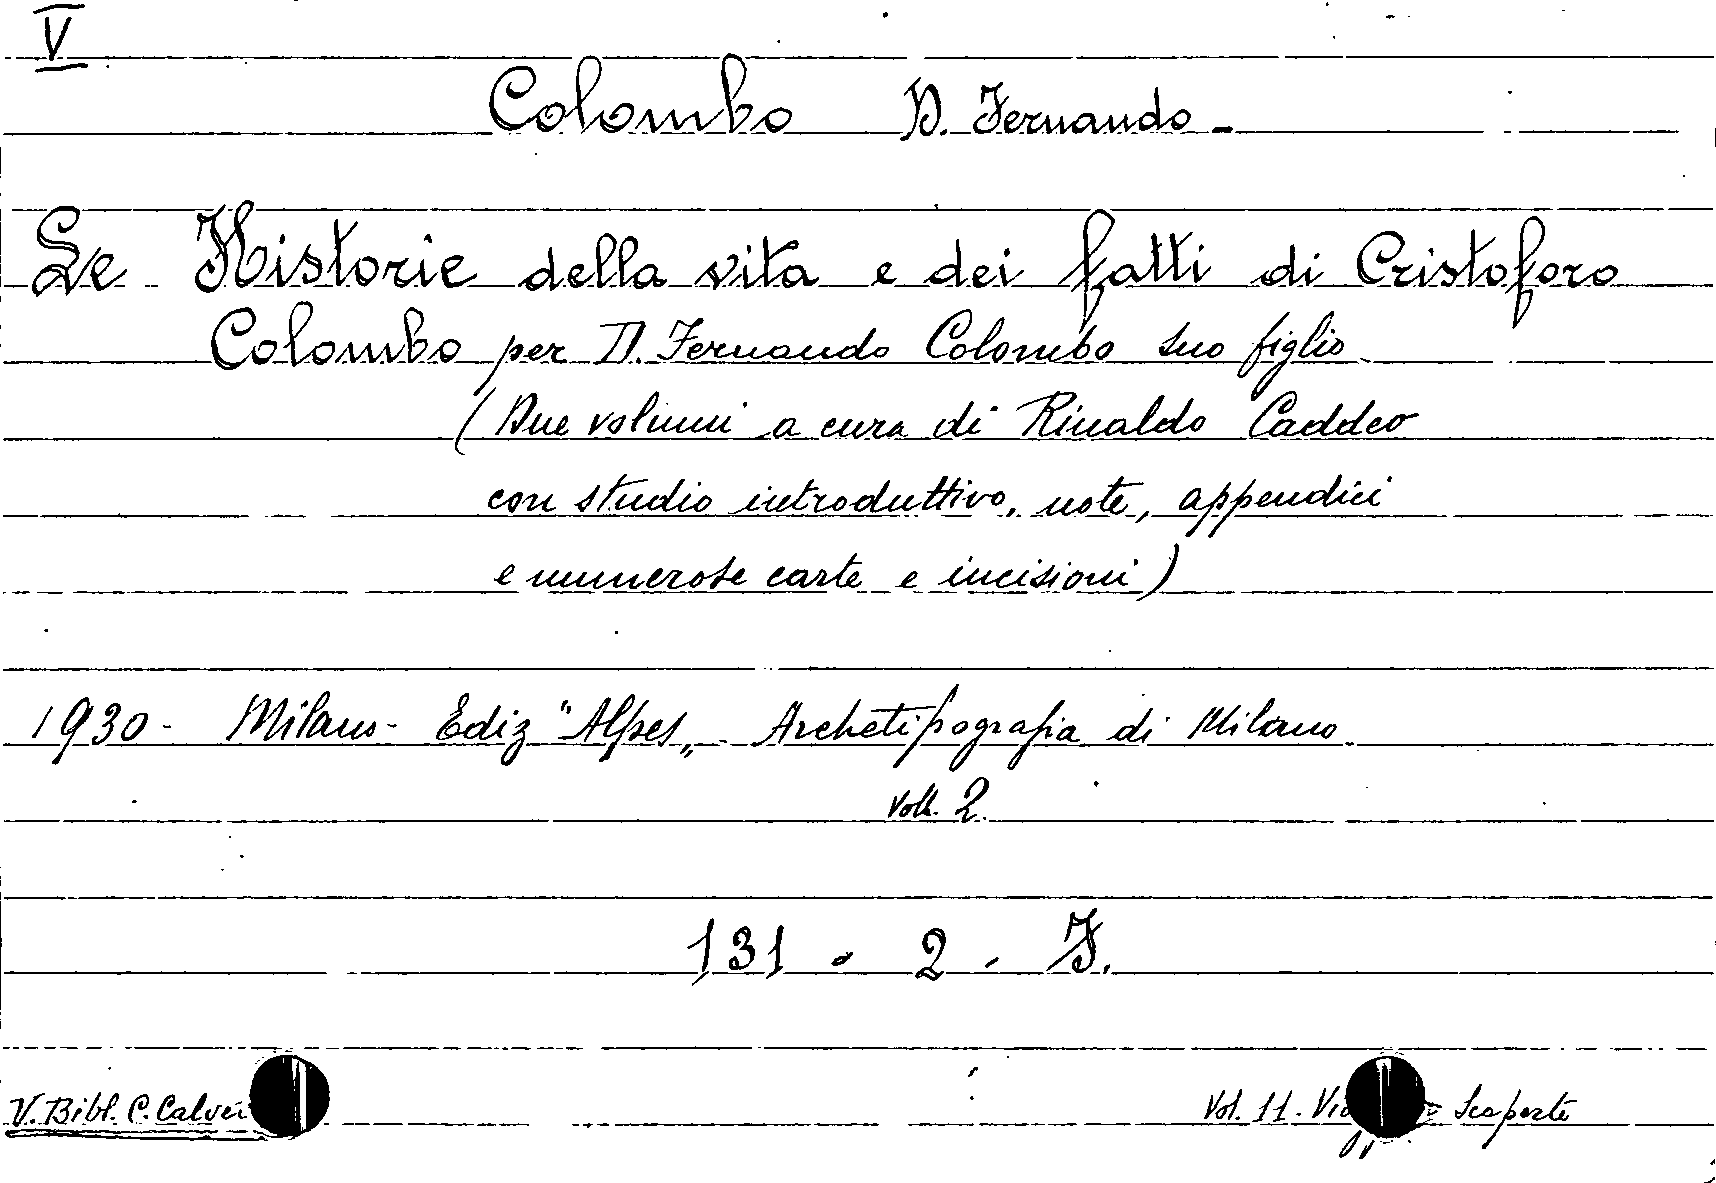 V
Colombo D. Fernando -
Le Historie della vita e dei fatti di Cristoforo
Colombo per D. Fernando Colombo suo figlio
(Due volumi a cura di Rinaldo Caddeo
con studio introduttivo, note, appendici
e numerose carte e incisioni)
1930 - Milano - Ediz "Alpes" - Archetipografia di Milano
Voll. 2.
131 - 2 - F.
V. Bibl. C. Calvi
Vol. 11 - Scoperte